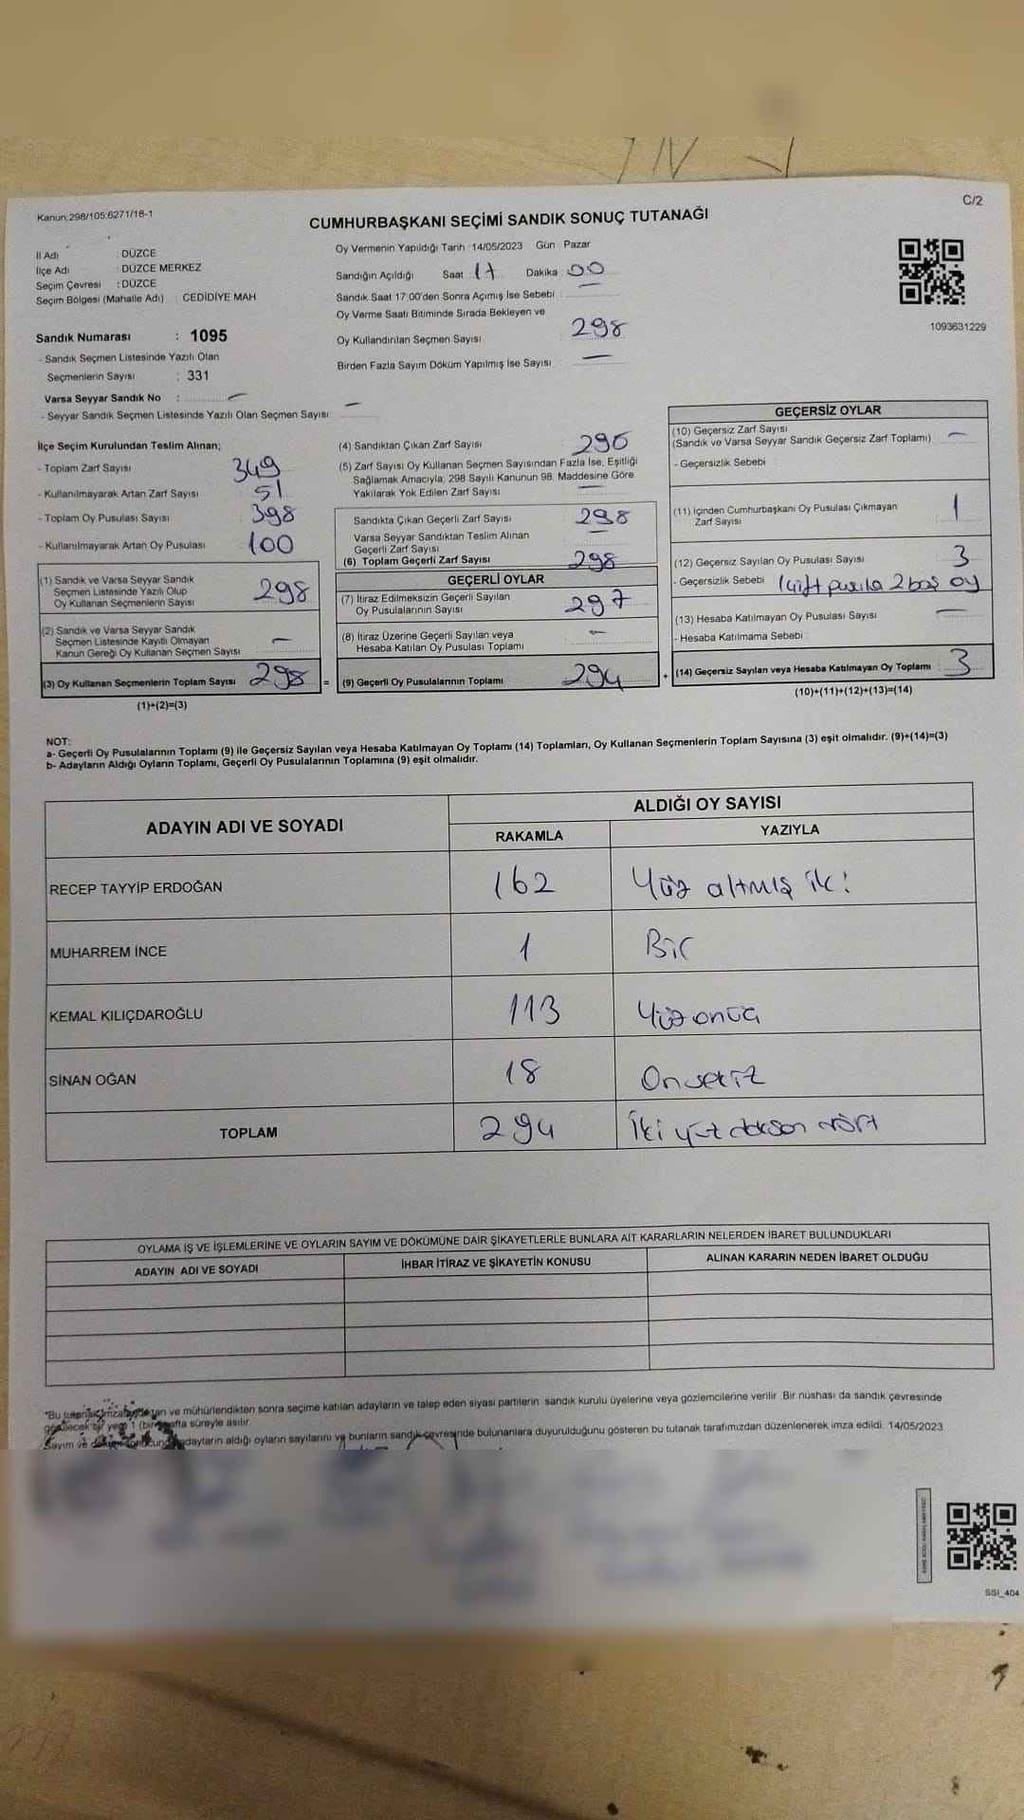 C/2
Kanun:298/105:6271/16-1
CUMHURBAŞKANI SEÇİMİ SANDIK SONUÇ TUTANAĞI
İl Adı : DÜZCE
İlçe Adı : DÜZCE MERKEZ
Seçim Çevresi : DÜZCE
Seçim Bölgesi (Mahalle Adı) : CEDİDİYE MAH
Sandık Numarası : 1095
- Sandık Seçmen Listesinde Yazılı Olan
Seçmenlerin Sayısı : 331
Varsa Seyyar Sandık No : —
- Seyyar Sandık Seçmen Listesinde Yazılı Olan Seçmen Sayısı: —
Oy Vermenin Yapıldığı Tarih :14/05/2023 Gün : Pazar
Sandığın Açıldığı Saat 17 Dakika 00
Sandık Saat 17:00'den Sonra Açımış İse Sebebi : —
Oy Verme Saati Bitiminde Sırada Bekleyen ve
Oy Kullandırılan Seçmen Sayısı 298
Birden Fazla Sayım Döküm Yapılmış İse Sayısı —
1093631229
İlçe Seçim Kurulundan Teslim Alınan;
- Toplam Zarf Sayısı 349
- Kullanılmayarak Artan Zarf Sayısı 51
- Toplam Oy Pusulası Sayısı 398
- Kullanılmayarak Artan Oy Pusulası 100
(1) Sandık ve Varsa Seyyar Sandık
Seçmen Listesinde Yazılı Olup
Oy Kullanan Seçmenlerin Sayısı 298
(2) Sandık ve Varsa Seyyar Sandık
Seçmen Listesinde Kayıtlı Olmayan
Kanun Gereği Oy Kullanan Seçmen Sayısı —
(3) Oy Kullanan Seçmenlerin Toplam Sayısı 298 =
(1)+(2)=(3)
(4) Sandıktan Çıkan Zarf Sayısı
(5) Zarf Sayısı Oy Kullanan Seçmen Sayısından Fazla İse, Eşitliği
Sağlamak Amacıyla, 298 Sayılı Kanunun 98. Maddesine Göre
Yakılarak Yok Edilen Zarf Sayısı —
Sandıkta Çıkan Geçerli Zarf Sayısı 298
Varsa Seyyar Sandıktan Teslim Alınan
Geçerli Zarf Sayısı —
(6) Toplam Geçerli Zarf Sayısı 298
GEÇERLİ OYLAR
(7) İtiraz Edilmeksizin Geçerli Sayılan
Oy Pusulalarının Sayısı 297
(8) İtiraz Üzerine Geçerli Sayılan veya
Hesaba Katılan Oy Pusulası Toplamı —
(9) Geçerli Oy Pusulalarının Toplamı 294 +
GEÇERSİZ OYLAR
(10) Geçersiz Zarf Sayısı
(Sandık ve Varsa Seyyar Sandık Geçersiz Zarf Toplamı) —
- Geçersizlik Sebebi
(11) İçinden Cumhurbaşkanı Oy Pusulası Çıkmayan
Zarf Sayısı 1
(12) Geçersiz Sayılan Oy Pusulası Sayısı 3
- Geçersizlik Sebebi 1 çift pusula 2 boş oy
(13) Hesaba Katılmayan Oy Pusulası Sayısı —
- Hesaba Katılmama Sebebi
(14) Geçersiz Sayılan veya Hesaba Katılmayan Oy Toplamı 3
(10)+(11)+(12)+(13)=(14)
NOT:
a- Geçerli Oy Pusulalarının Toplamı (9) ile Geçersiz Sayılan veya Hesaba Katılmayan Oy Toplamı (14) Toplamları, Oy Kullanan Seçmenlerin Toplam Sayısına (3) eşit olmalıdır. (9)+(14)=(3)
b- Adayların Aldığı Oyların Toplamı, Geçerli Oy Pusulalarının Toplamına (9) eşit olmalıdır.
ADAYIN ADI VE SOYADI
ALDIĞI OY SAYISI
RAKAMLA YAZIYLA
RECEP TAYYİP ERDOĞAN 162 Yüz altmış iki
MUHARREM İNCE 1 Bir
KEMAL KILIÇDAROĞLU 113 Yüz onüç
SİNAN OĞAN 18 Onsekiz
TOPLAM 294 İki yüz doksan dört
OYLAMA İŞ VE İŞLEMLERİNE VE OYLARIN SAYIM VE DÖKÜMÜNE DAİR ŞİKAYETLERLE BUNLARA AİT KARARLARIN NELERDEN İBARET BULUNDUKLARI
ADAYIN ADI VE SOYADI İHBAR İTİRAZ VE ŞİKAYETİN KONUSU ALINAN KARARIN NEDEN İBARET OLDUĞU
"Bu ve mühürlendikten sonra seçime katılan adayların ve talep eden siyasi partilerin sandık kurulu üyelerine veya gözlemcilerine verilir. Bir nüshası da sandık çevresinde
bir yere 1 (bir) hafta süreyle asılır.
Sayım ve adayların aldığı oyların sayılarını ve bunların sandık çevresinde bulunanlara duyurulduğunu gösteren bu tutanak tarafımızdan düzenlenerek imza edildi. 14/05/2023
SSI_404